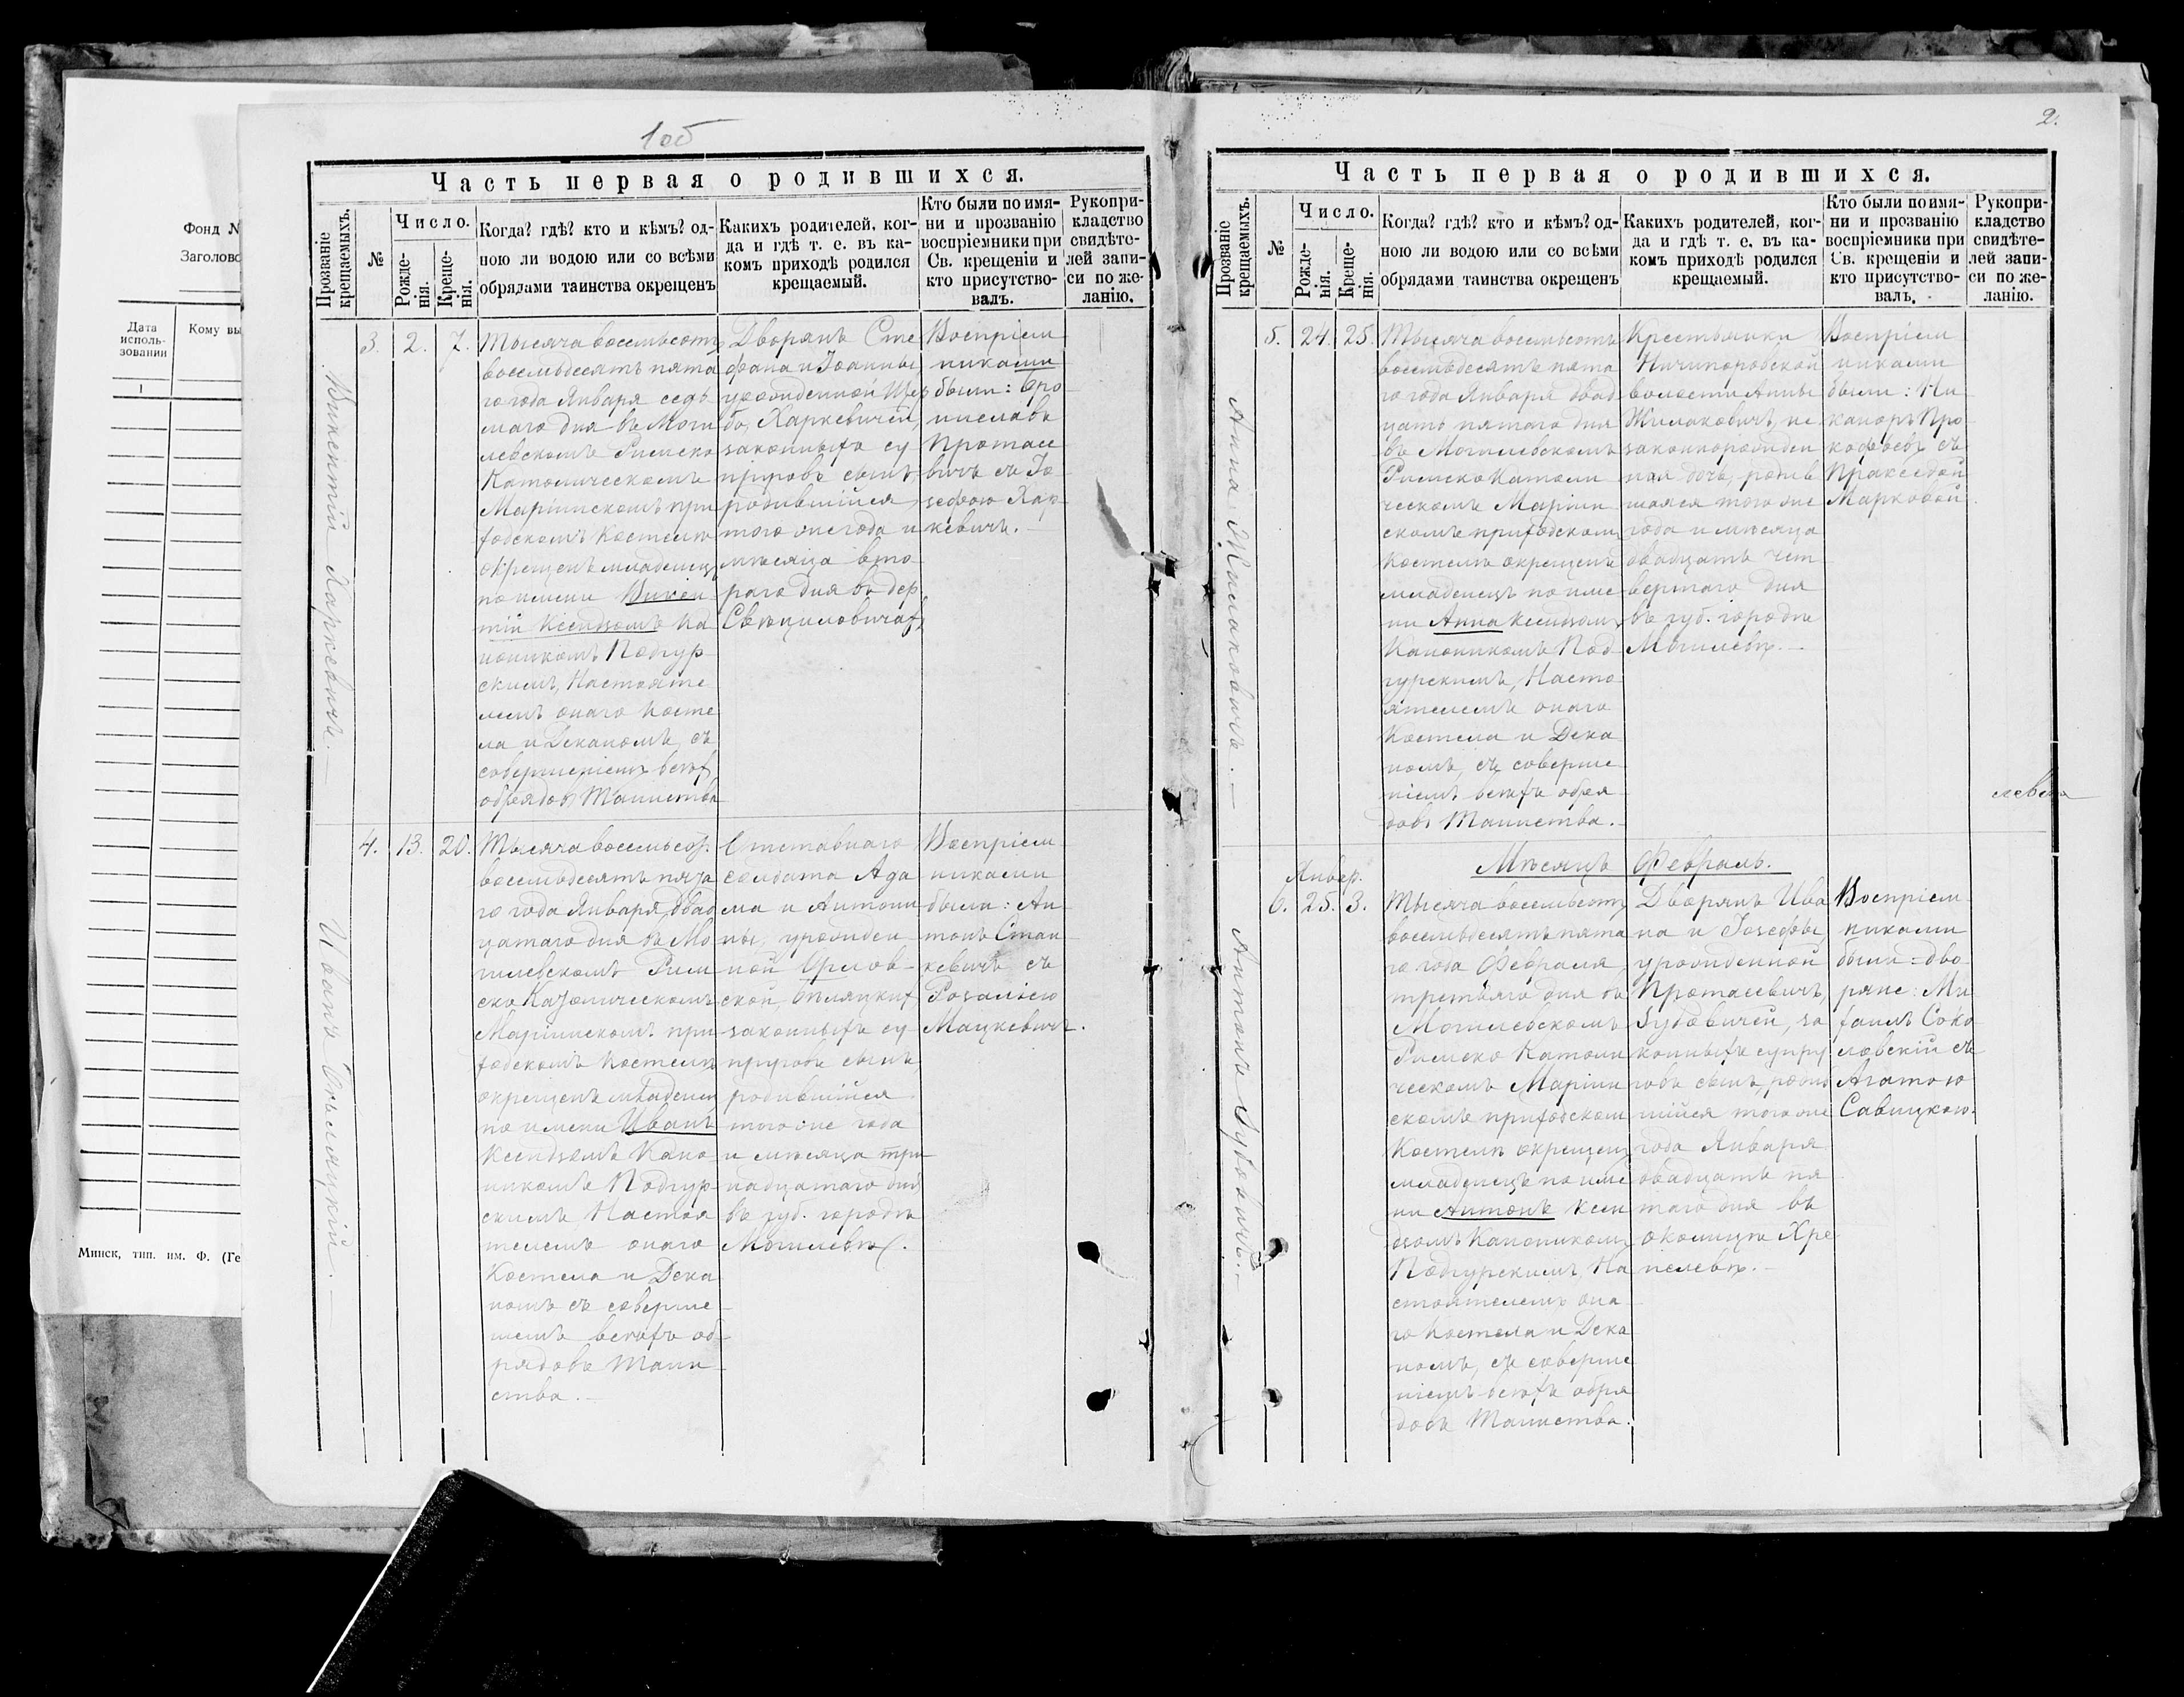 Фонд №
Заголово
Дата
исполь-
зования
Кому вы
1
Минск, тип. им. Ф. (Ге
1об
Часть первая о родившихся.
Прозваніе
крещаемыхъ.
№
Число.
Рожде-
нія.
Креще-
нія.
Когда? гдѣ? кто и кѣмъ? од-
ною ли водою или со всѣми
обрядами таинства окрещенъ
Какихъ родителей, ког-
да и гдѣ т. е. въ ка-
комъ приходѣ родился
крещаемый.
Кто были по имя-
ни и прозванію
воспріемники при
Св. крещеніи и
кто присутство-
валъ.
Рукопри-
кладство
свидѣте-
лей запи-
си по же-
ланію.
Викентій Харкевичъ. —
3.
2.
7.
Тысяча восемьсотъ
восемьдесятъ пята
го года Января седь
маго дня въ Моги
левскомъ Римско
Католическомъ
Маріинскомъ при
ходскомъ Костелѣ
окрещенъ младенец
по имени Викен
тій Ксендзомъ Ка
ноникомъ Подгур
скимъ, Настояте
лемъ онаго Косте
ла и Деканомъ, съ
совершеніемъ всѣх
обрядовъ Таинства
Дворянъ Сте
фана и Іоанны
урожденной Щер
бо, Харкевичей,
законныхъ су
пруговъ сынъ,
родившійся
того же года и
мѣсяца вто
раго дня въ дер.
Свѣциловичах
Воспріем
никами
были: Бро
ниславъ
Протасе
вичъ съ Іо
зефою Хар
кевичъ. —
Иванъ Бѣляцкій. —
4.
13.
20.
Тысяча восемьсот.
восемьдесятъ пята
го года Января двад
цатаго дня въ Мо
гилевскомъ Рим
ско Католическомъ
Маріинскомъ при
ходскомъ Костелѣ
окрещенъ младенец
по имени Иванъ
Ксендзомъ Кано
никомъ Подгур
скимъ Настоя
телемъ онаго
Костела и Дека
номъ съ соверше
ніемъ всѣхъ об
рядовъ Таин
ства. —
Отставнаго
солдата Ада
ма и Антони
ны, урожден
ной Орлов
ской, Бѣляцких
законныхъ су
пруговъ сынъ,
родившійся
того же года
и мѣсяца три
надцатаго дня
въ губ. городѣ
Могилевѣ.
Воспріем
никами
были: Ан
тонъ Стан
кевичъ съ
Розаліею
Мацкевичъ.
2.
Часть первая о родившихся.
Прозваніе
крещаемыхъ.
№
Число.
Рожде-
нія.
Креще-
нія.
Когда? гдѣ? кто и кѣмъ? од-
ною ли водою или со всѣми
обрядами таинства окрещенъ
Какихъ родителей, ког-
да и гдѣ т. е. въ ка-
комъ приходѣ родился
крещаемый.
Кто были по имя-
ни и прозванію
воспріемники при
Св. крещеніи и
кто присутство-
валъ.
Рукопри-
кладство
свидѣте-
лей запи-
си по же-
ланію.
Анна Жилаковичъ. —
5.
24.
25.
Тысяча восемьсотъ
восемьдесятъ пята
го года Января двад
цать пятаго дня
въ Могилевскомъ
Римско Католи
ческомъ Маріин
скомъ приходском
Костелѣ окрещенъ
младенецъ по име
ни Анна Ксендзом
Каноникомъ Под
гурскимъ, Насто
ятелемъ онаго
Костела и Дека
номъ, съ соверше
ніемъ всѣхъ обря
довъ Таинства. —
Крестьянки
Ничипоровской
волости Анны
Жилаковичъ, не
законнорожден
ная дочь, родив
шаяся того же
года и мѣсяца
двадцать чет
вертаго дня
въ губ. городѣ
Могилевѣ. —
Воспріем
никами
были: Ни
каноръ Про
кофьевъ съ
Пракседой
Марковой.
левска
Мѣсяцъ Февраль.
Антонъ Зубовичъ. —
Январ.
6.
25.
3.
Тысяча восемьсотъ
восемьдесятъ пята
го года Февраля
третьяго дня въ
Могилевскомъ
Римско Католи
ческомъ Маріин
скомъ приходском
Костелѣ окрещен
младенецъ по име
ни Антонъ Ксен
дзомъ Каноником
Подгурскимъ, На
стоятелемъ она
го Костела и Дека
номъ, съ соверше
ніемъ всѣхъ обря
довъ Таинства.
Дворянъ Ива
на и Іозефы,
урожденной
Протасевичъ,
Зубовичей, за
конныхъ супру
говъ сынъ, родив
шійся того же
года Января
двадцать пя
таго дня въ
околицѣ Хре
пелевѣ. —
Воспріем
никами
были: дво
ряне: Ми
хаилъ Соко
ловскій съ
Агатою
Савицкою.